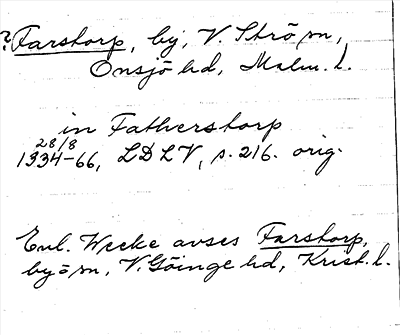 ? Farstorp, by, V. Strö sn,
Onsjö hd, Malm. l.
in Fatherstorp
28/8
1334-66, LDLV, s. 216. orig.
Enl. Weeke avses Farstorp,
by o sn, V. Göinge hd, Krist. l.